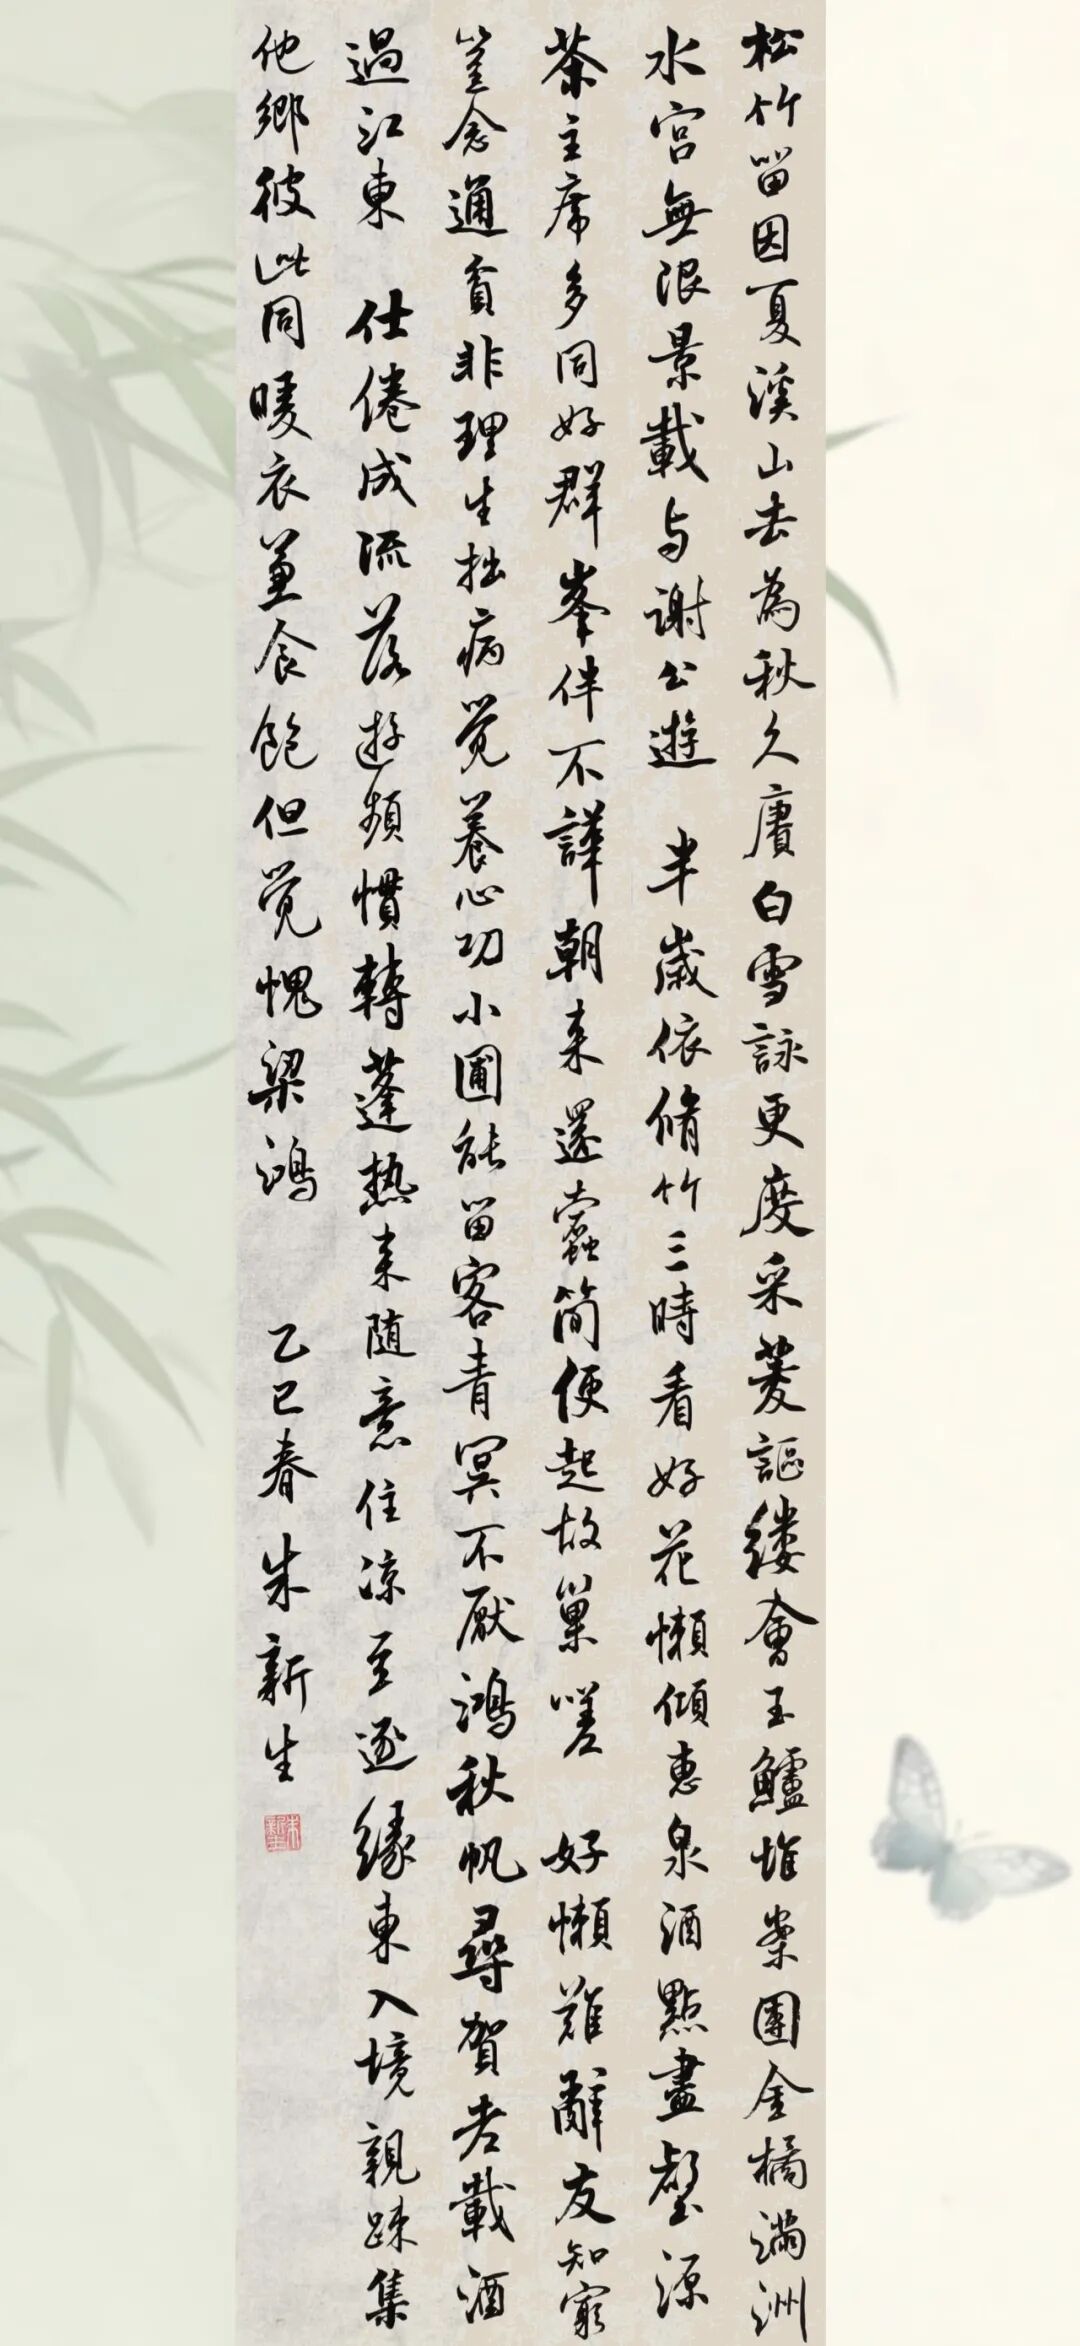 松竹留因夏溪山去為秋久賡白雪詠更度采菱謳縷會玉鱸堆案團金橘滿洲
水宮無限景載与謝公遊 半歲依脩竹三時看好花懶傾惠泉酒點盡壑源
茶主席多同好群峯伴不譁朝来還蠹簡便起故巢嗟 好懶難辭友知窮
豈念通貧非理生拙病觉養心功小圃能留客青冥不厭鴻秋帆尋賀老載酒
過江東 仕倦成流落遊頻慣轉蓬热来随意住凉至逐緣東入境親疎集
他鄉彼此同暖衣兼食飽但觉愧梁鴻 乙巳春朱新生
朱新生